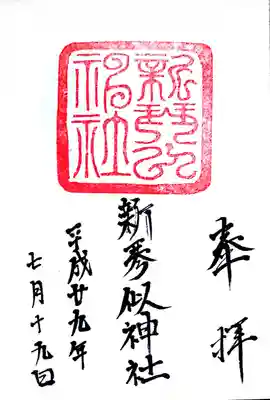 奉拝
新琴似神社
平成廿九年
七月十九日
新琴似神社